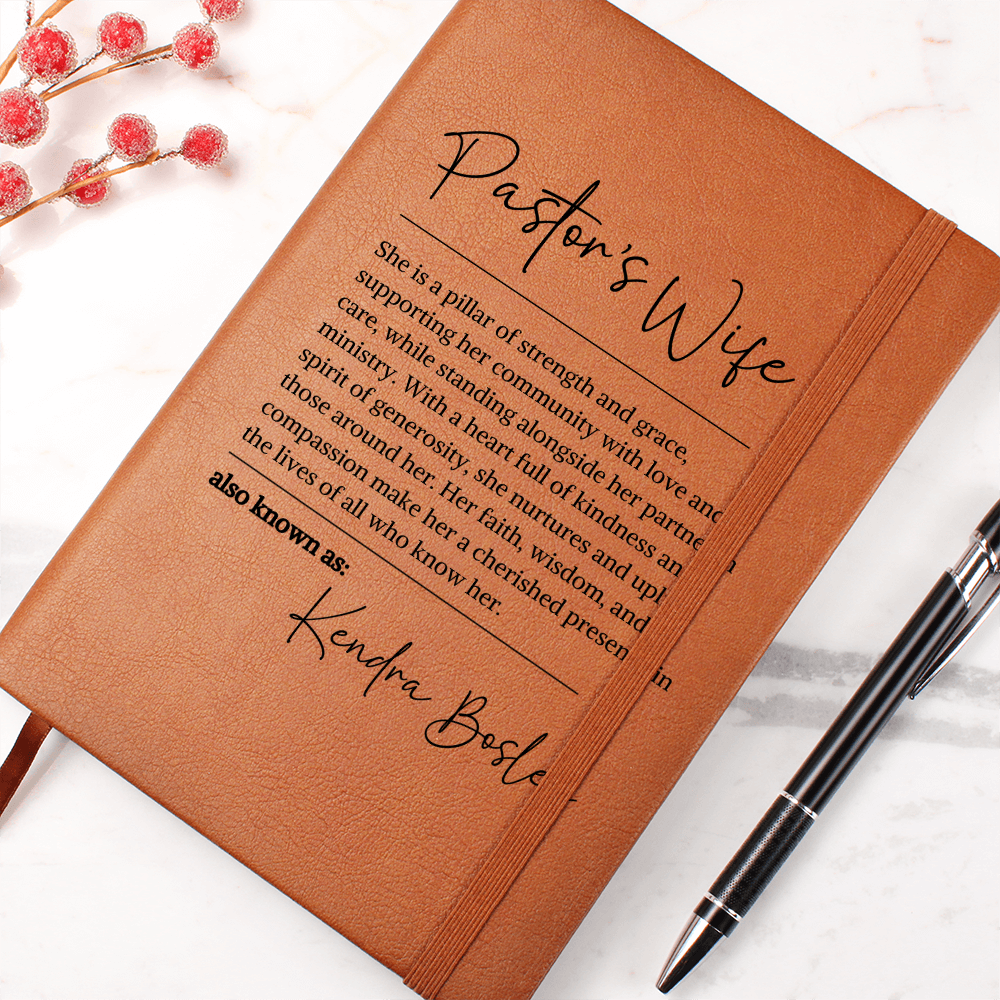 Pastor's Wife
She is a pillar of strength and grace,
supporting her community with love and
care, while standing alongside her partne
ministry. With a heart full of kindness an n
spirit of generosity, she nurtures and upl
those around her. Her faith, wisdom, and
compassion make her a cherished presen in
the lives of all who know her.
also known as:
Kendra Bosle